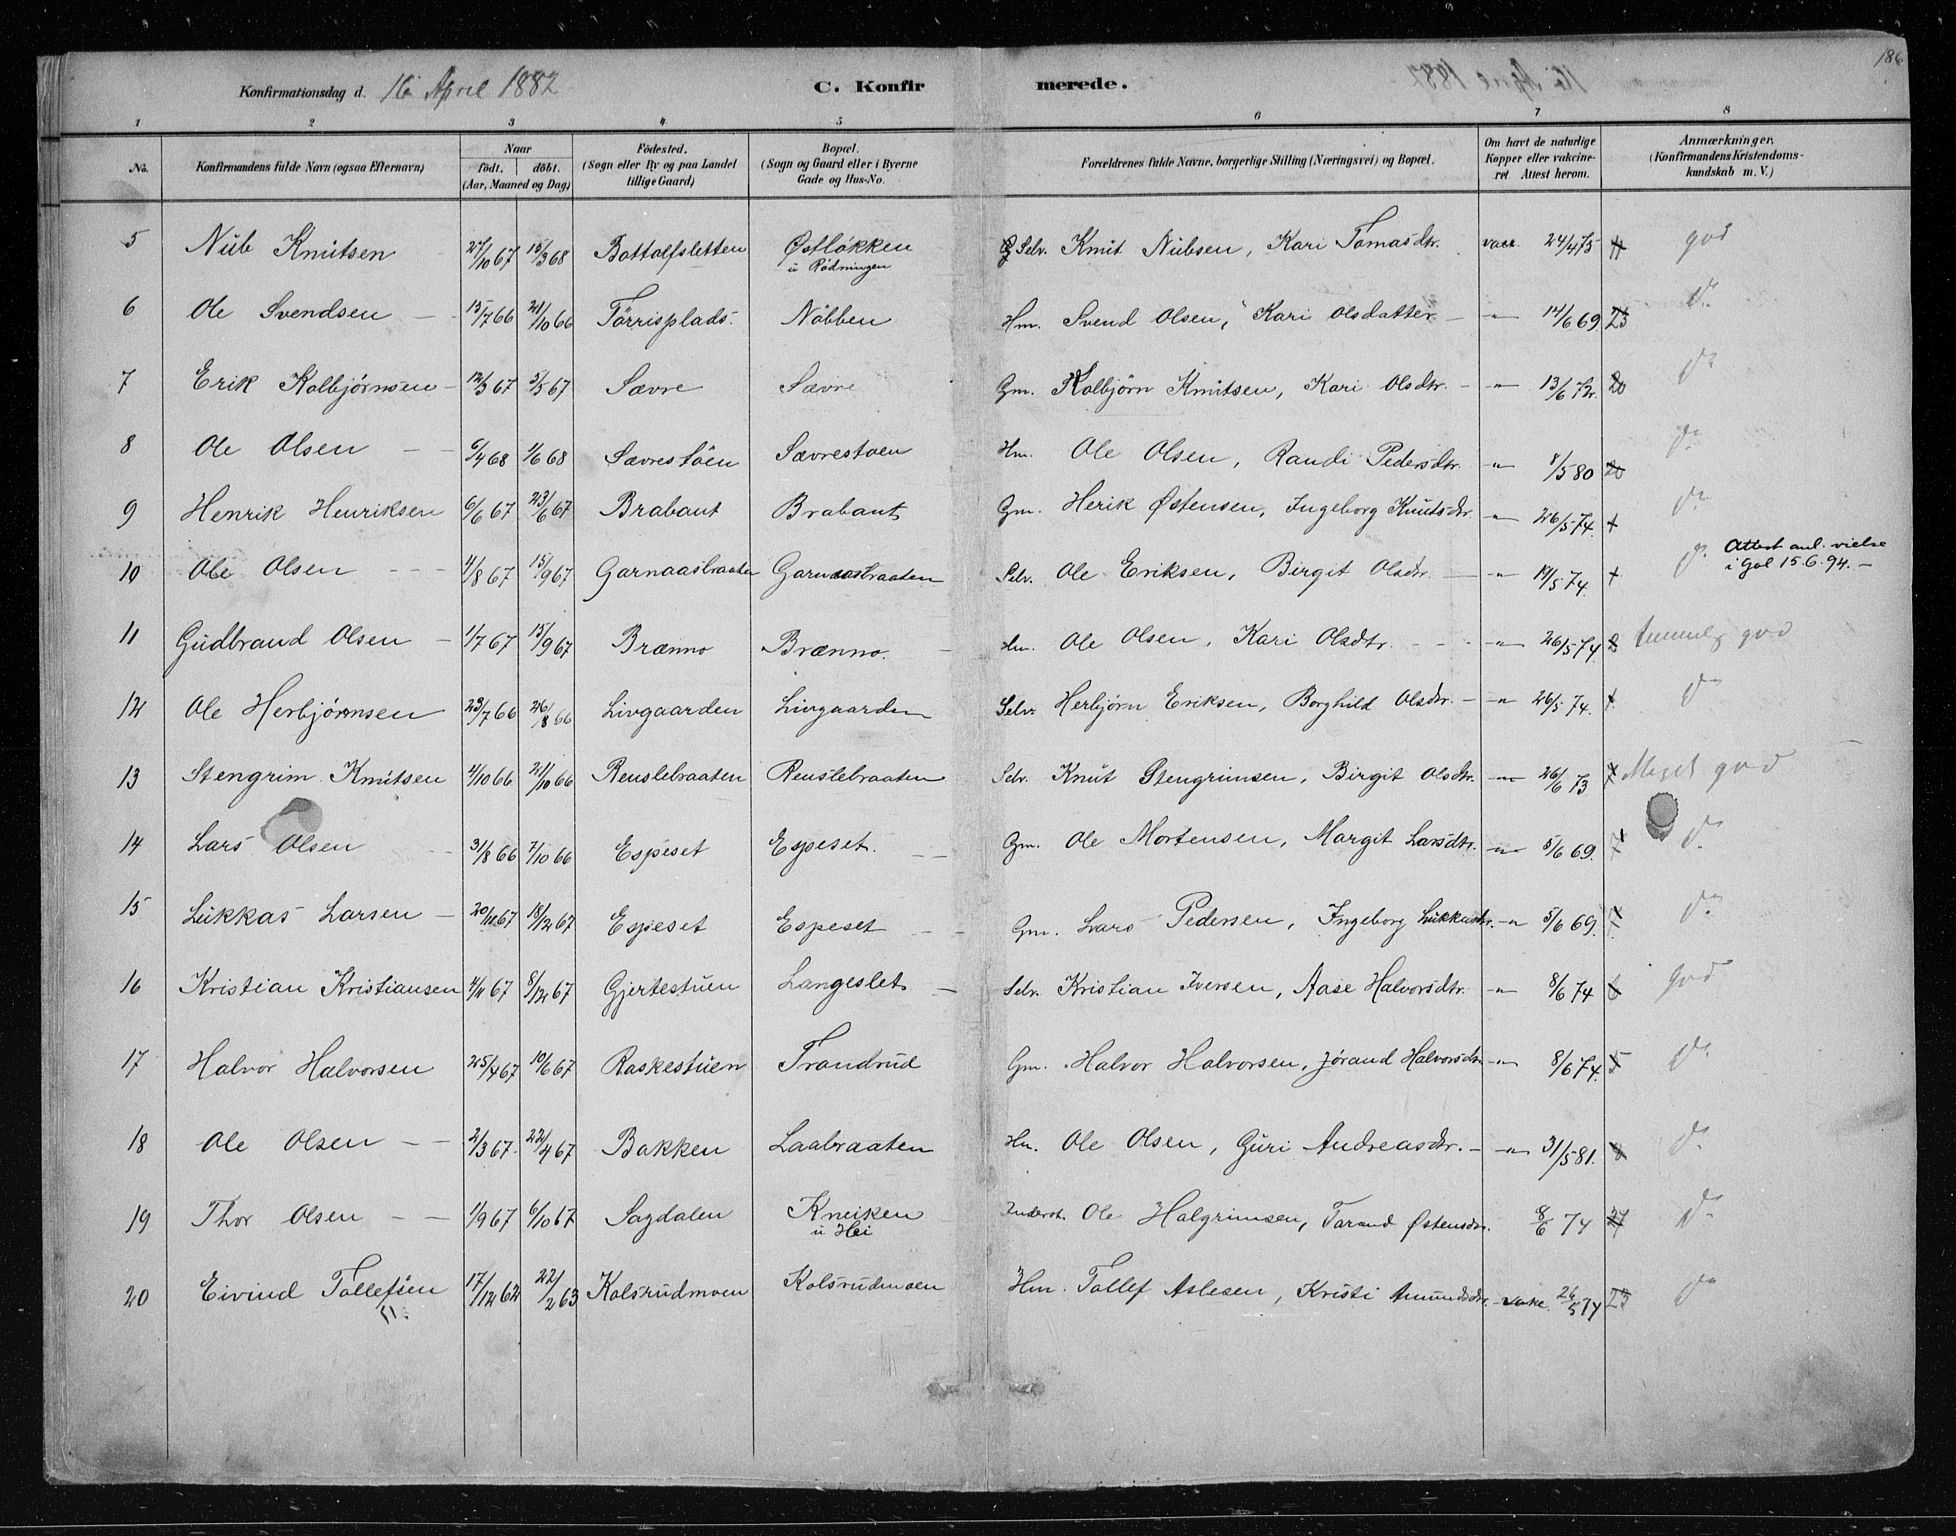 186
Konfirmationsdag d. 16 April 1882 C. Konfirmerede.
1 2 3 4 5 6 7 8
No. Konfirmandens fulde Navn (ogsaa Efternavn) Naar födt. döbt. (Aar, Maaned og Dag) Födested. (Sogn eller By og paa Landet tillige Gaard) Bopæl. (Sogn og Gaard eller i Byerne Gade og Hus-No. Forældrenes fulde Navne, borgerlige Stilling (Næringsvei) og Bopæl. Om havt de naturlige Kopper eller vakcineret Attest herom. Anmærkninger. (Konfirmandens Kristendomskundskab m. V.)
5 Nub Knutsen 27/10 67 15/3 68 Bottolfsletten Østlökken u Rödningen Selv. Knut Nubsen, Kari Tomasdtr. vacc. 24/4 75 god
6 Ole Svendsen 15/7 66 21/10 66 Törrisplads. Nöbben Hm. Svend Olsen, Kari Olsdatter " 14/6 69. 23 do
7 Erik Kolbjörnsen 12/3 67 5/5 67 Sævre Sævre Gm. Kolbjörn Knutsen, Kari Olsdtr. " 13/6 72. 20 do
8 Ole Olsen 6/4 68 1/6 68 Sævrestöen Sævrestoen Hm. Ole Olsen, Randi Pedersdtr. " 8/5 80 20 do
9 Henrik Henriksen 6/6 67 23/6 67 Brabant Brabant Gm. Herik Østensen, Ingeborg Knutsdtr. " 26/5 74. do
10 Ole Olsen 4/8 67 15/9 67 Garnaasbraaten Garnaasbraaten Selv. Ole Eriksen, Birgit Olsdtr. " 19/5 74. do Attest anl. vielse i Gol 15.6.94.-
11 Gudbrand Olsen 1/7 67 15/9 67 Brænno Brænno. Hm. Ole Olsen, Kari Olsdtr. " 26/5 74. temmelig god
12 Ole Herbjörnsen 23/7 66 26/8 66 Livgaarden Livgaarden Selv. Herbjörn Eriksen, Borghild Olsdtr. " 26/5 74. do
13 Stengrim Knutsen 4/10 66 21/10 66 Renslebraaten Renslebraaten Selv. Knut Stengrimsen, Birgit Olsdtr. " 26/6 73 Meget god
14 Lars Olsen 31/8 66 7/10 66 Espeset Espeset. Gm. Ole Mortensen, Margit Larsdtr. " 5/6 69. 7 do
15 Lukkas Larsen 20/11 67 18/12 67 Espeset Espeset Gm. Lars Pedersen, Ingeborg Lukkasdtr. " 5/6 69. 7 do
16 Kristian Kristiansen 4/11 67 8/12 67 Gjertestuen Langeslet Selv. Kristian Iversen, Aase Halvorsdtr. " 8/6 74 6 god
17 Halvor Halvorsen 25/4 67 10/6 67 Raskestuen Trandrud Gm. Halvor Halvorsen, Jörand Halvorsdtr " 8/6 74. 5 do
18 Ole Olsen 2/3 67. 22/4 67 Bakken Laabraaten Hm. Ole Olsen, Guri Andreasdtr. " 31/5 81. do
19 Thor Olsen 1/9 67 6/10 67 Sagdalen Kneiken u Hei Inderst. Ole Halgrimsen, Tarand Østensdtr. 8/6 74 27 do
20 Eivind Tollefsen 17/12 62 22/2 63 Kolsrudmoen Kolsrudmoen Hm. Tollef Aslesen, Kristi Amundsdtr. vakc. 26/5 74 23 do